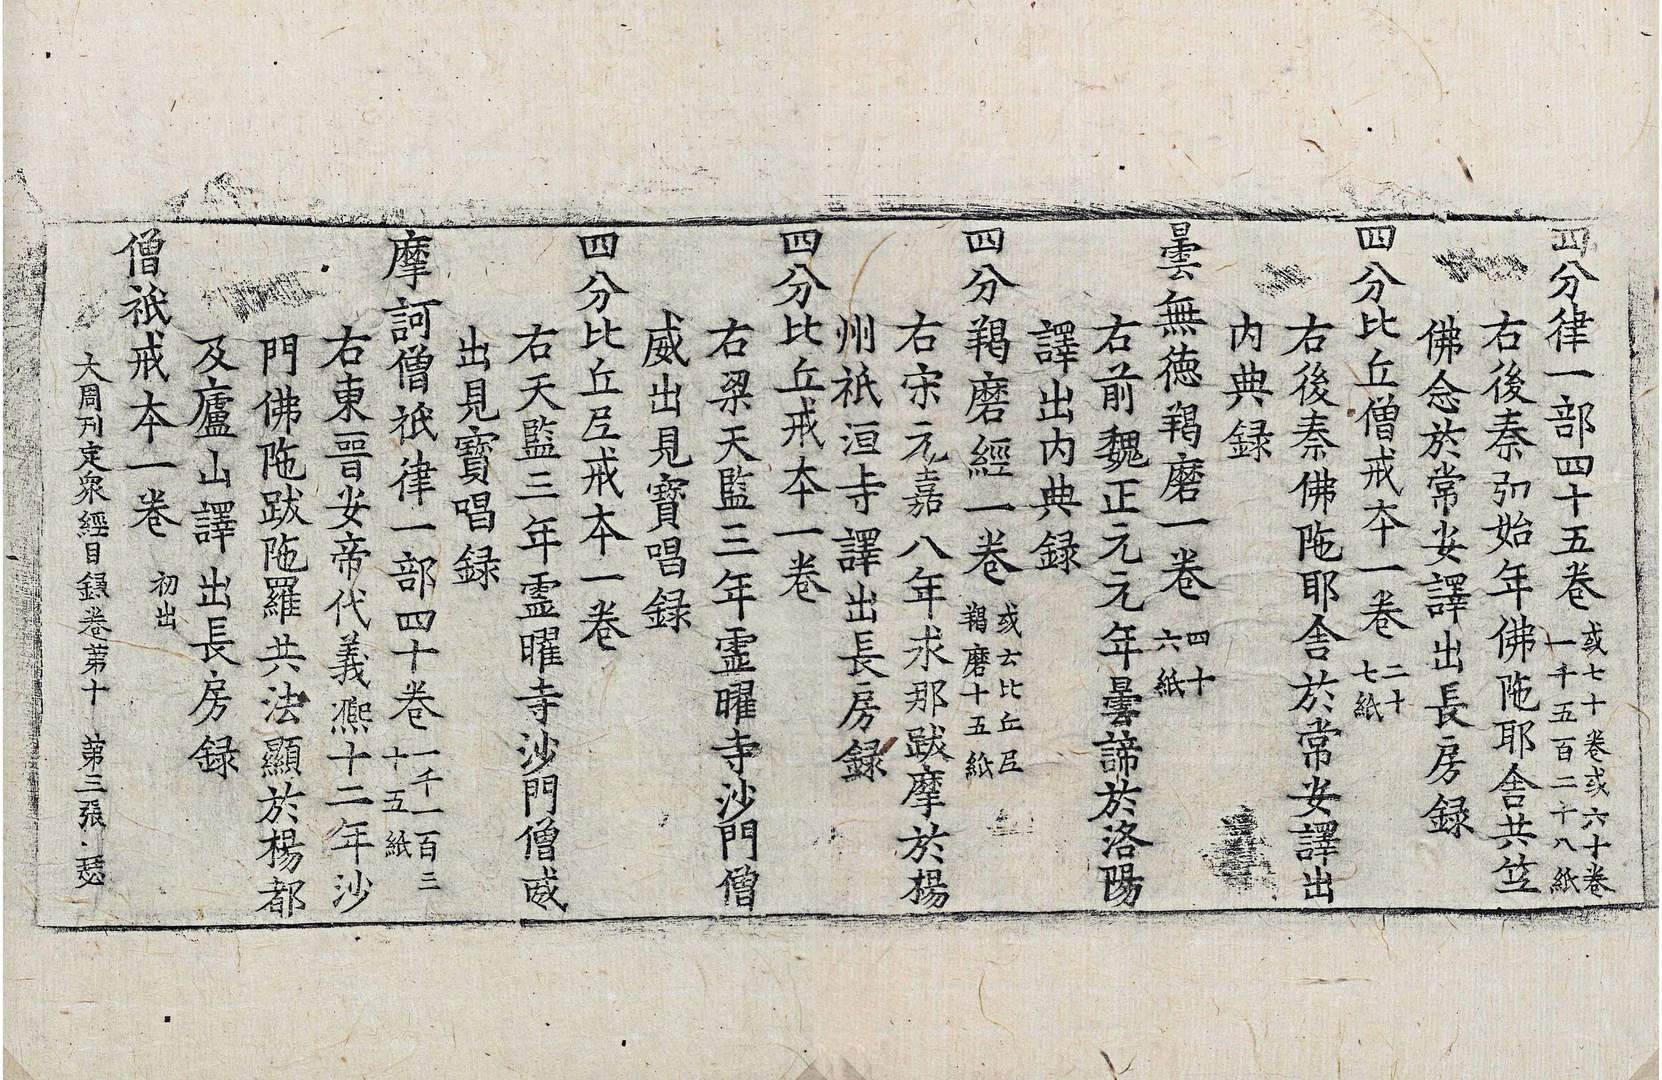 四分律一部四十五卷 或七十卷或六十卷 一千五百二十八紙
右後秦弘始年佛陁耶舍共笁
佛念於常安譯出長房録
四分比丘僧戒本一卷 二十七紙
右後秦佛陁耶舍於常安譯出
内典録
曇無徳羯磨一卷 四十六紙
右前魏正元元年曇諦於洛陽
譯出内典録
四分羯磨經一卷 或云比丘尼羯磨十五紙
右宋元嘉八年求那跋摩於楊
州祇洹寺譯出長房録
四分比丘戒本一卷
右梁天監三年霊曜寺沙門僧
威出見寶唱録
四分比丘尼戒本一卷
右天監三年霊曜寺沙門僧威
出見寶唱録
摩訶僧祇律一部四十卷 一千一百三十五紙
右東晋安帝代義熈十二年沙
門佛陁跋陁羅共法顯於楊都
及廬山譯出長房録
僧祇戒本一卷 初出
大周刊定衆經目録卷苐十 苐三張 瑟